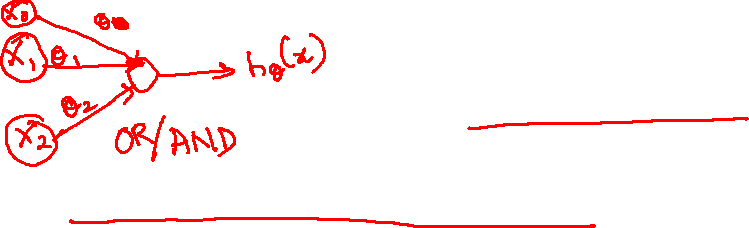 x₀ θ₀
x₁ θ₁ hθ(x)
θ₂
x₂ OR/AND